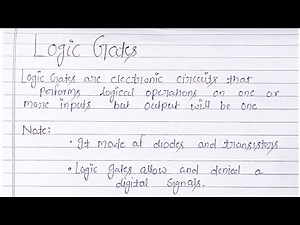 Logic Gates
Logic Gates are electronic circuits that
performs logical operations on one or
more inputs but output will be one
Note:
• It made of diodes and transistors
• Logic gates allow and denied a
digital signals.